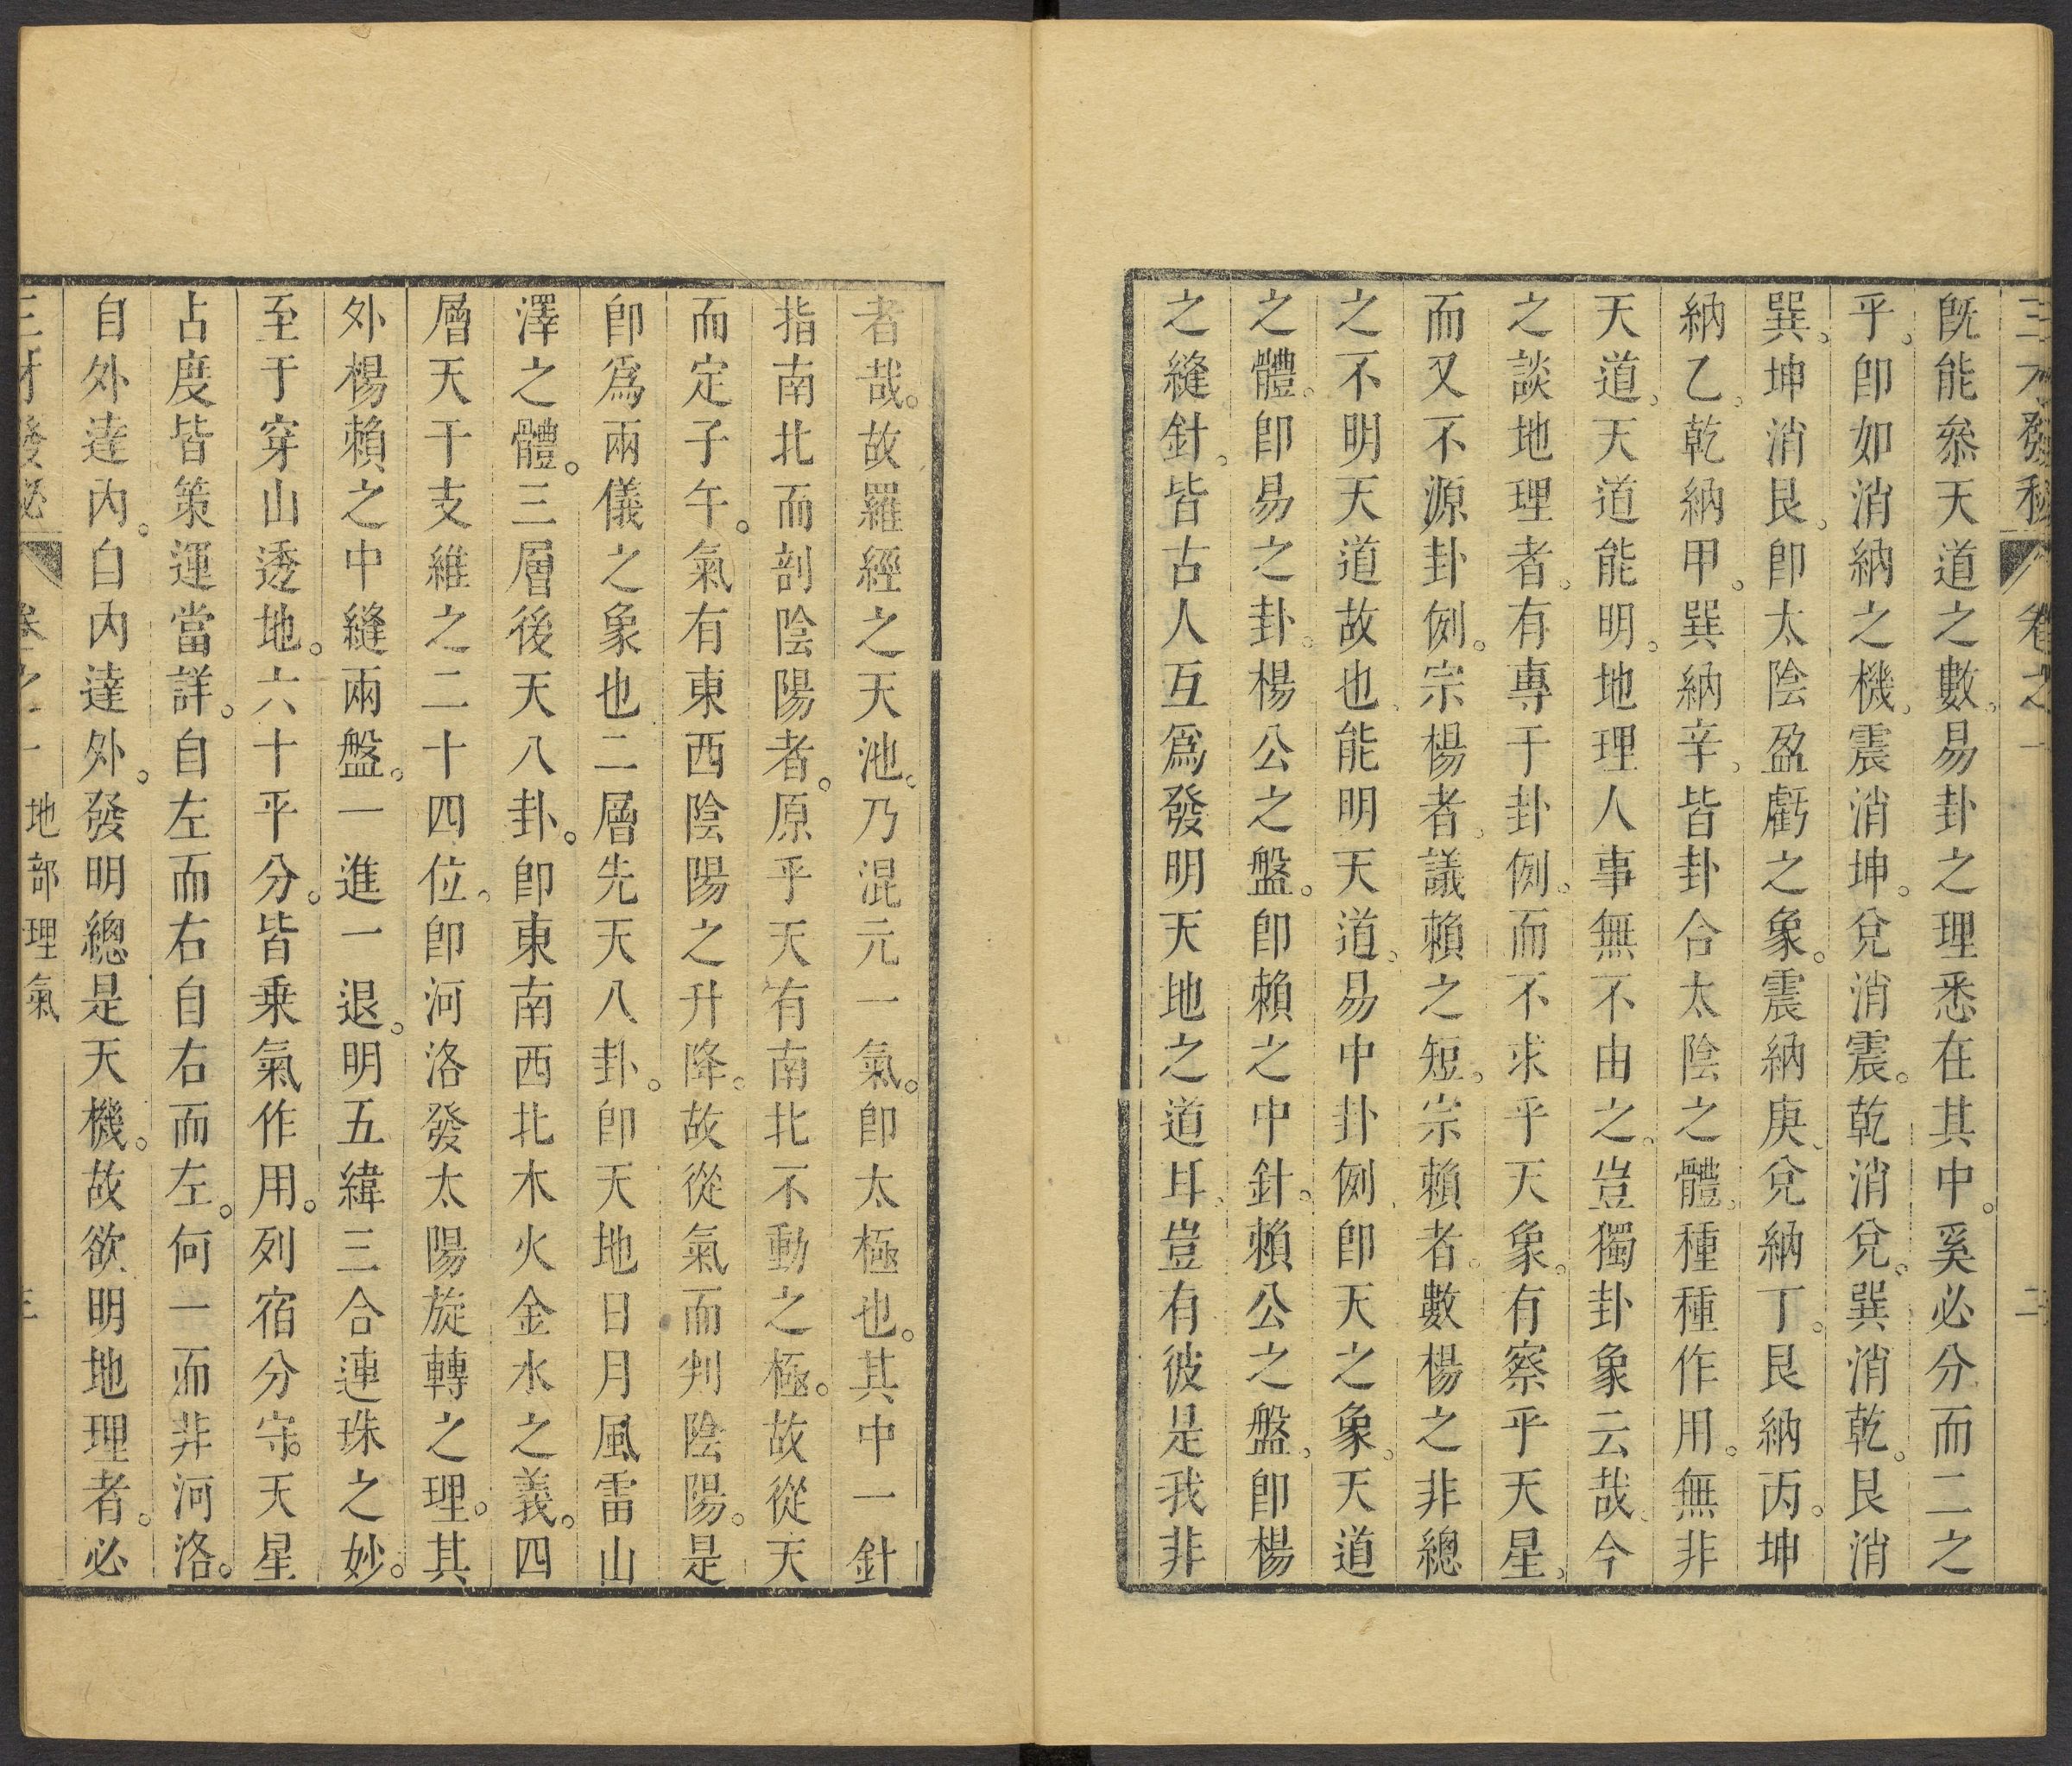 三才發秘 卷之一 二
旣能叅天道之數。易卦之理悉在其中。奚必分而二之
乎。卽如消納之機。震消坤。兌消震。乾消兌。巽消乾。艮消
巽。坤消艮。卽太陰盈虧之象。震納庚、兌納丁。艮納丙。坤
納乙。乾納甲。巽納辛。皆卦合太陰之體。種種作用。無非
天道。天道能明。地理人事無不由之。豈獨卦象云哉。今
之談地理者。有專于卦例。而不求乎天象。有察乎天星。
而又不源卦例。宗楊者。議賴之短。宗賴者。數楊之非總
之不明天道故也。能明天道。易中卦例。卽天之象。天道
之體。卽易之卦。楊公之盤。卽賴之中針。賴公之盤。卽楊
之縫針。皆古人互爲發明天地之道耳。豈有彼是我非
者哉。故羅經之天池。乃混元一氣。卽太極也。其中一針
指南北而剖陰陽者。原乎天有南北不動之極。故從天
而定子午。氣有東西陰陽之升降。故從氣而判陰陽。是
卽爲兩儀之象也二層先天八卦。卽天地日月風雷山
澤之體。三層後天八卦。卽東南西北木火金水之義。四
層天干支維之二十四位。卽河洛發太陽旋轉之理。其
外楊賴之中縫兩盤。一進一退。明五緯三合連珠之妙。
至于穿山透地。六十平分。皆乘氣作用。列宿分守。天星
占度皆策運當詳。自左而右自右而左。何一而非河洛。
自外達內。自內達外。發明總是天機。故欲明地理者。必
三才發秘 卷之一 地部理氣 三